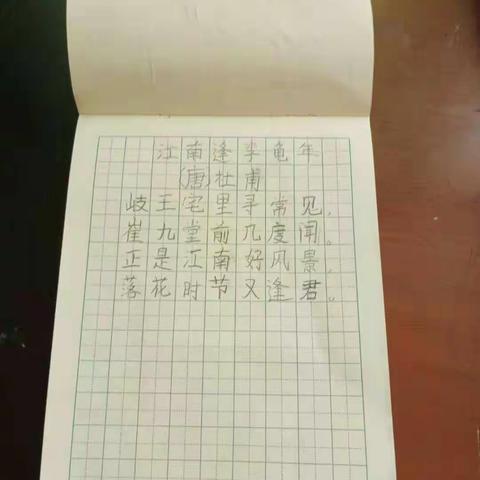 江南逢李龟年
(唐)杜甫
岐王宅里寻常见,
崔九堂前几度闻。
正是江南好风景,
落花时节又逢君。